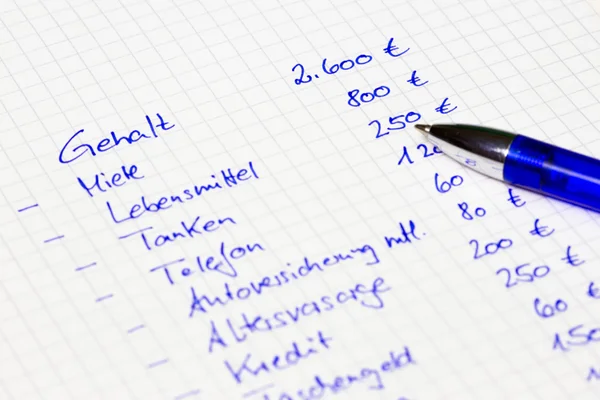 Gehalt 2.600 €
- Miete 800 €
- Lebensmittel 250 €
- Tanken 120
- Telefon 60
- Autoversicherung mtl. 80 €
- Altersvorsorge 200 €
- Kredit 250 €
- Taschengeld 60 €
150